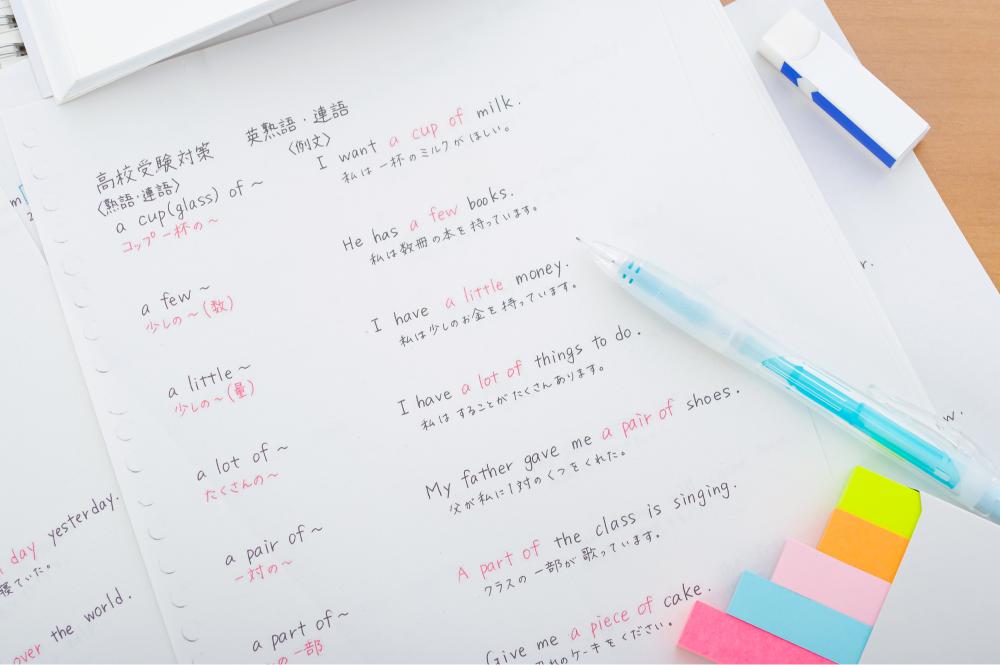 高校受験対策 英熟語・連語
〈熟語・連語〉 〈例文〉
a cup(glass) of ~
コップ一杯の~
I want a cup of milk.
私は一杯のミルクがほしい。
a few ~
少しの~(数)
He has a few books.
私は数冊の本を持っています。
a little ~
少しの~(量)
I have a little money.
私は少しのお金を持っています。
a lot of ~
たくさんの~
I have a lot of things to do.
私はすることがたくさんあります。
a pair of ~
一対の~
My father gave me a pair of shoes.
父が私に1対のくつをくれた。
a part of ~
の一部
A part of the class is singing.
クラスの一部が歌っています。
Give me a piece of cake.
のケーキをください。
day yesterday.
寝ていた。
over the world.
m
2
r.
w.